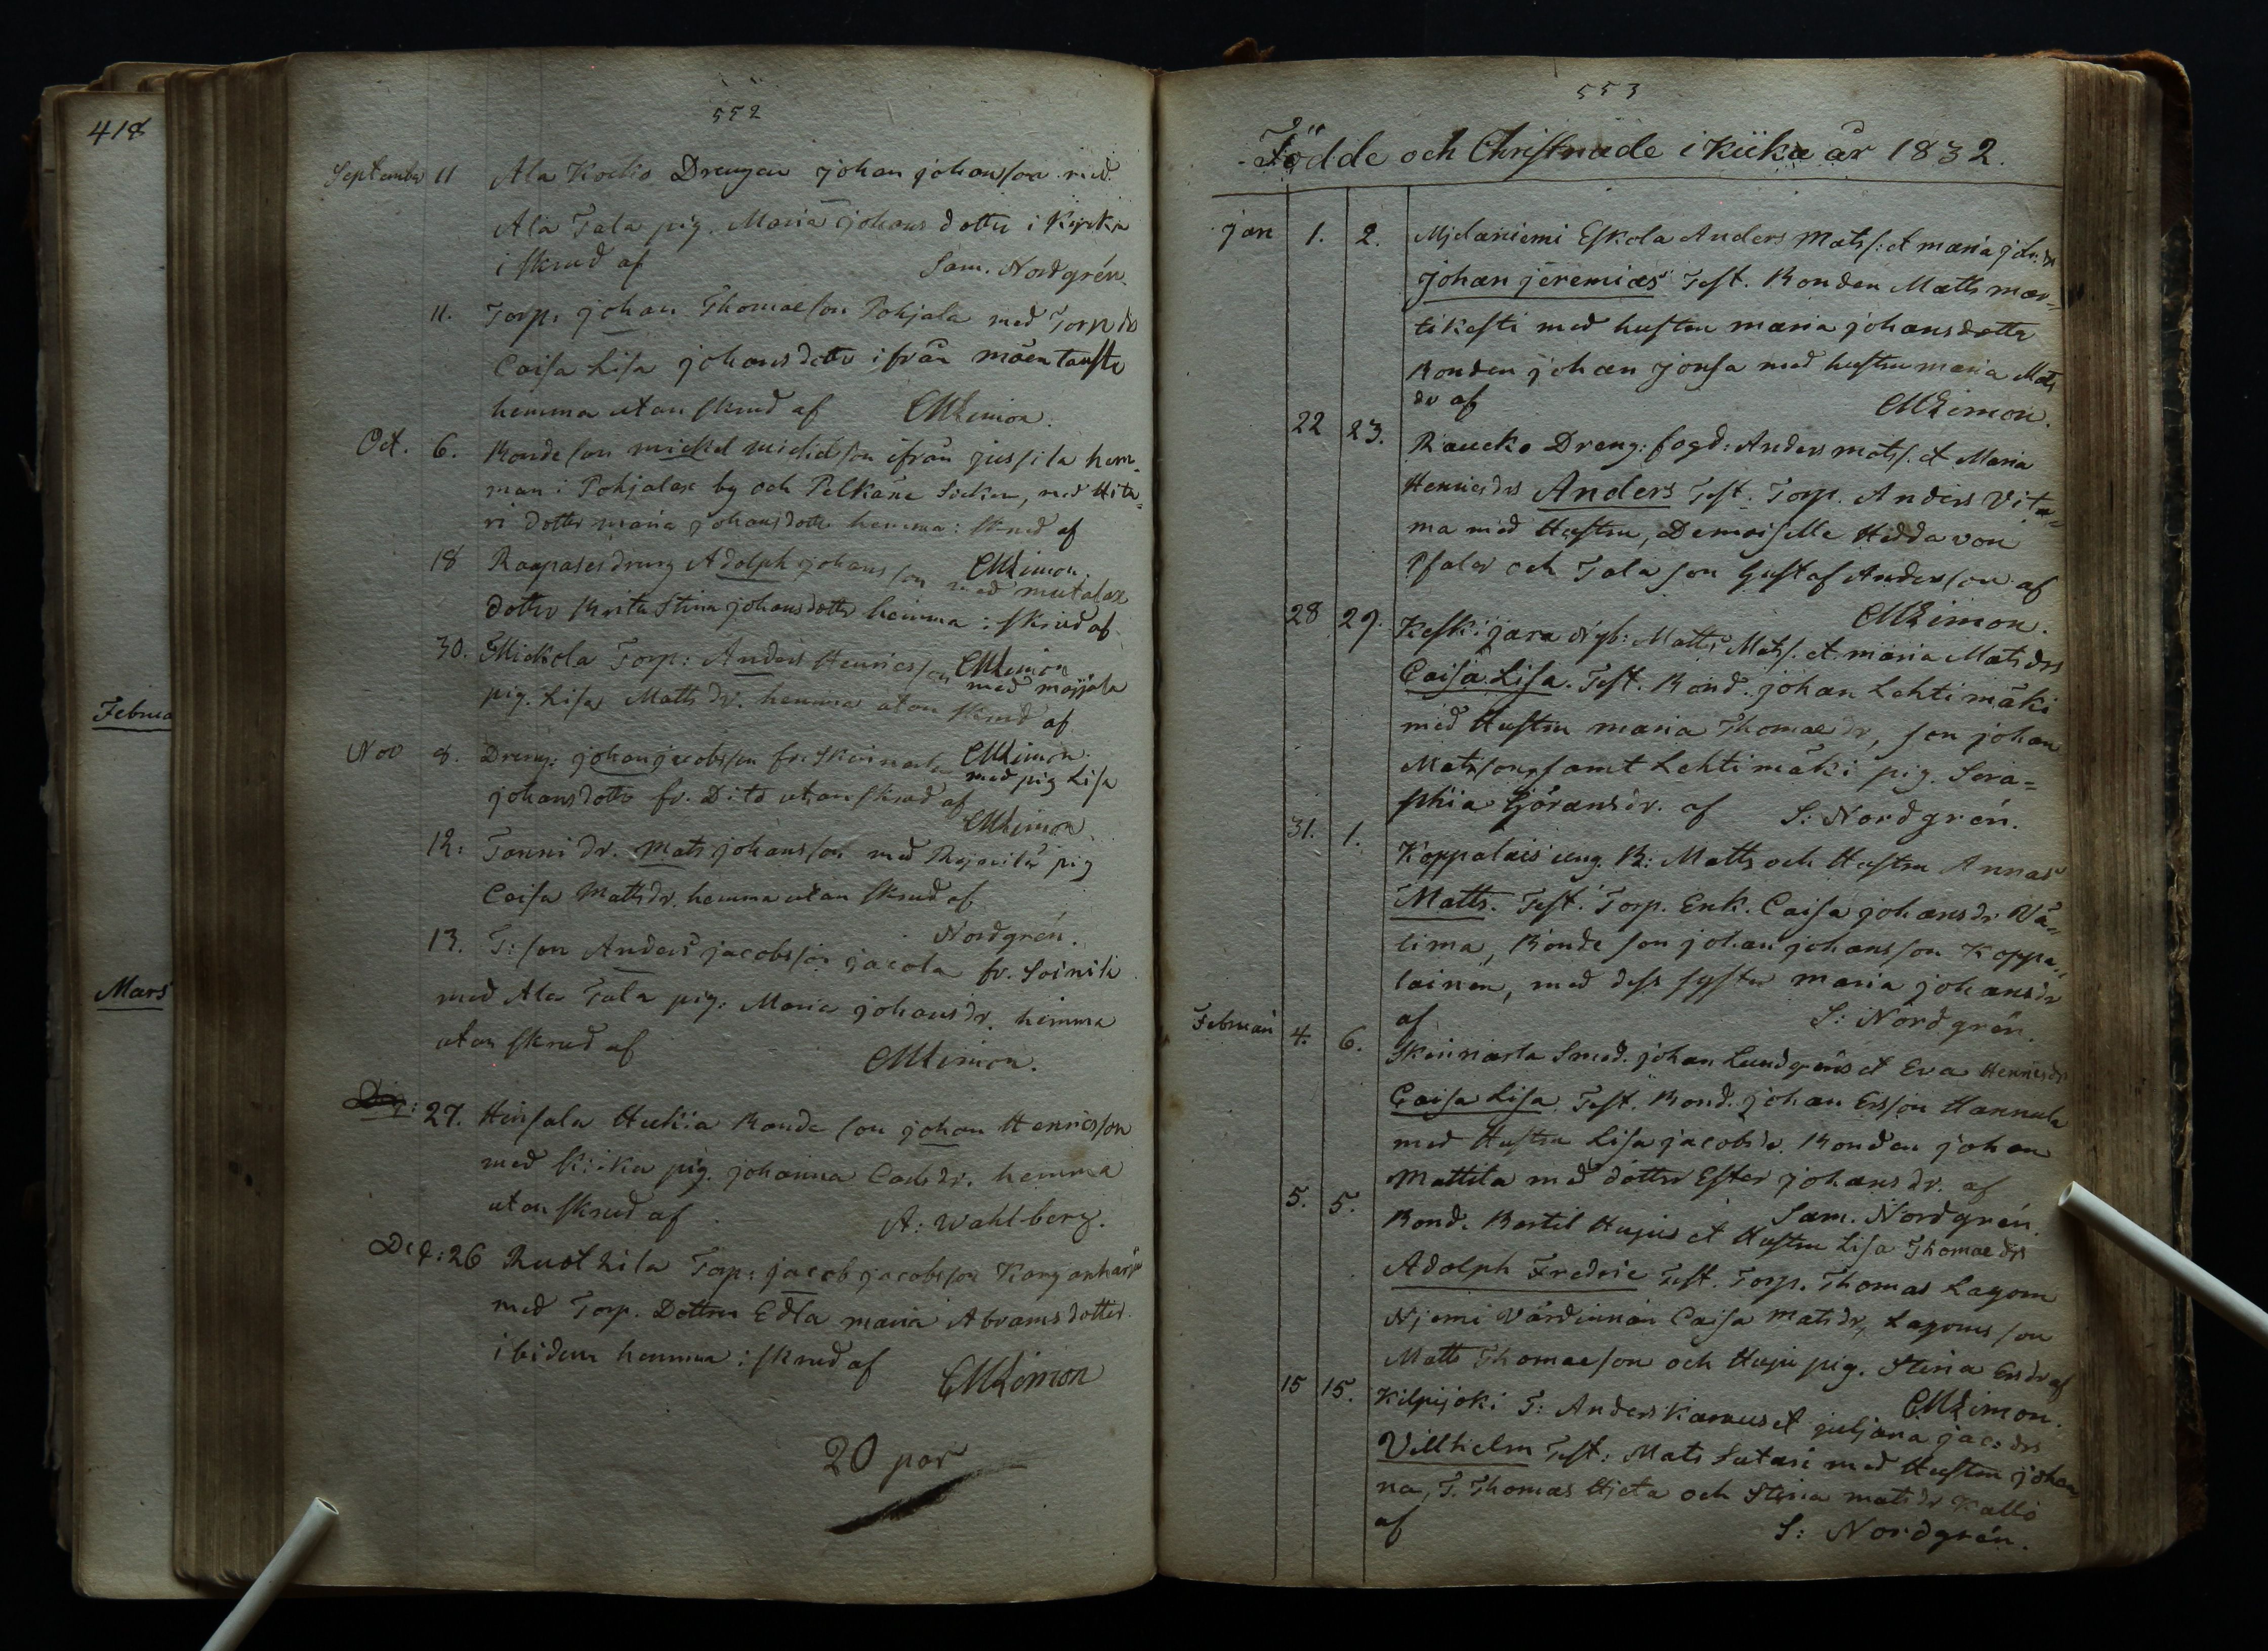 418
Februa
Mars
552
September 11 Ala Kockio Drengen johan johansson med
Ala Tala pig. Maria johans dotter i Kyrka
i skrud af Sam. Nordgrén.
11. Torp. johan Thomaeson Pohjala med Torp dr
Caisa Lisa johansdotter ifrån
hemma utan skrud af CMLimon.
Oct. 6. Bondeson mickel mickelson ifrån jussila hem-
man i Pohjalax by och Pelkäne Sockn, med
ri dotter maria johansdotter hemma i skrud af
CMLimon.
18 dreng Adolph johansson med mutalax
dotter Brita Stina johansdotter hemma i skrud af
CMLimon
30. Mickola Torp: Anders Henricsson med
pig. Lisa Matts dr. hemma utan skrud af
CMLimon.
Nov 8. Dreng: johan jacobsson fr. med pig Lisa
johansdotter fr. Dito utan skrud af
CMLimon
12: Tanni dr. Mats johansson med pig
Caisa Mattsdr. hemma utan skrud af
Nordgrén.
13. T: son Anders jacobsson jacola fr. Soinila
med Ala Tala pig: Maria johansdr. hemma
utan skrud af CMLimon.
27. Hukia Bonde son johan Henricsson
med pig. johanna hemma
utan skrud af A: Wahlberg.
Dec: 26 Torp: jacob jacobsson
med Torp. Dottren Edla maria Abramsdotter
ibidem hemma i skrud af CMLimon
20 par
553
Födde och Christnade i Kiika år 1832.
jan 1. 2. Mjdäniemi Eskola Anders Mats: et maria joh: dr
johan jeremias Test. Bonden Matts mar-
tikesti med hustru maria johansdotter
Bonden johan jonsa med hustru maria Mats
dr af CMLimon.
22 23. Raucko Dreng: fogd: Anders mats. et Maria
Henricsdrs Anders Test. Torp. Anders Vita-
ma med Hustru, Demoiselle Hedda von
Pfaler och Tala son Gustaf Andersson af
CMLimon.
28 29. Keskijara Nyb: Matts Mats. et maria Matsdrs
Caisa Lisa. Test. Bond. johan Lehtimäki
med Hustru maria Thomaedr, son johan
Matsson, samt Lehtimäki pig. Sera-
phia Göransdr. af S: Nordgrén.
31. 1. Koppalais ung. B: Matts och Hustru Annas
Matts. Test. Torp. Enk. Caisa johansdr Vä-
lima, Bonde son johan johansson Koppa-
lainen, med dess syster maria johansdr
af S: Nordgrén.
Februari 4. 6. Skinnarla Smed. johan Lundgrens et Eva Henricsdrs
Caisa Lisa. Test. Bond. johan Ersson Hannula
med Hustru Lisa jacobsdr. Bonden johan
Mattila med dotter Ester johansdr. af
Sam. Nordgrén.
5. 5. Bond. Bertil Hujus et Hustru Lisa Thomaedrs
Adolph Fredric Test. Torp. Thomas Lagom
Njemi Värdinnan Caisa Matsdr, Lagoms son
Matts Thomaeson och Huju pig. Stina Ersdr af
CMLimon.
15 15. Kilpijoki T: Anders Kamus et juljana jac: drs
Villhelm Test: Mats Sutari med Hustru johan-
na, T. Thomas Hjeta och Stina matsdr Kallio
af S: Nordgrén.